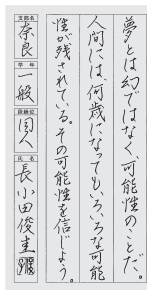 夢とは幻ではなく、可能性のことだ。
人間には、何歳になってもいろいろな可能
性が残されている。その可能性を信じよう。
支部名
奈良
学年
一般
段級位
同人
氏名
長小田俊圭